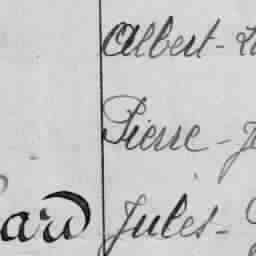 Albert-
Pierre-
ard Jules-